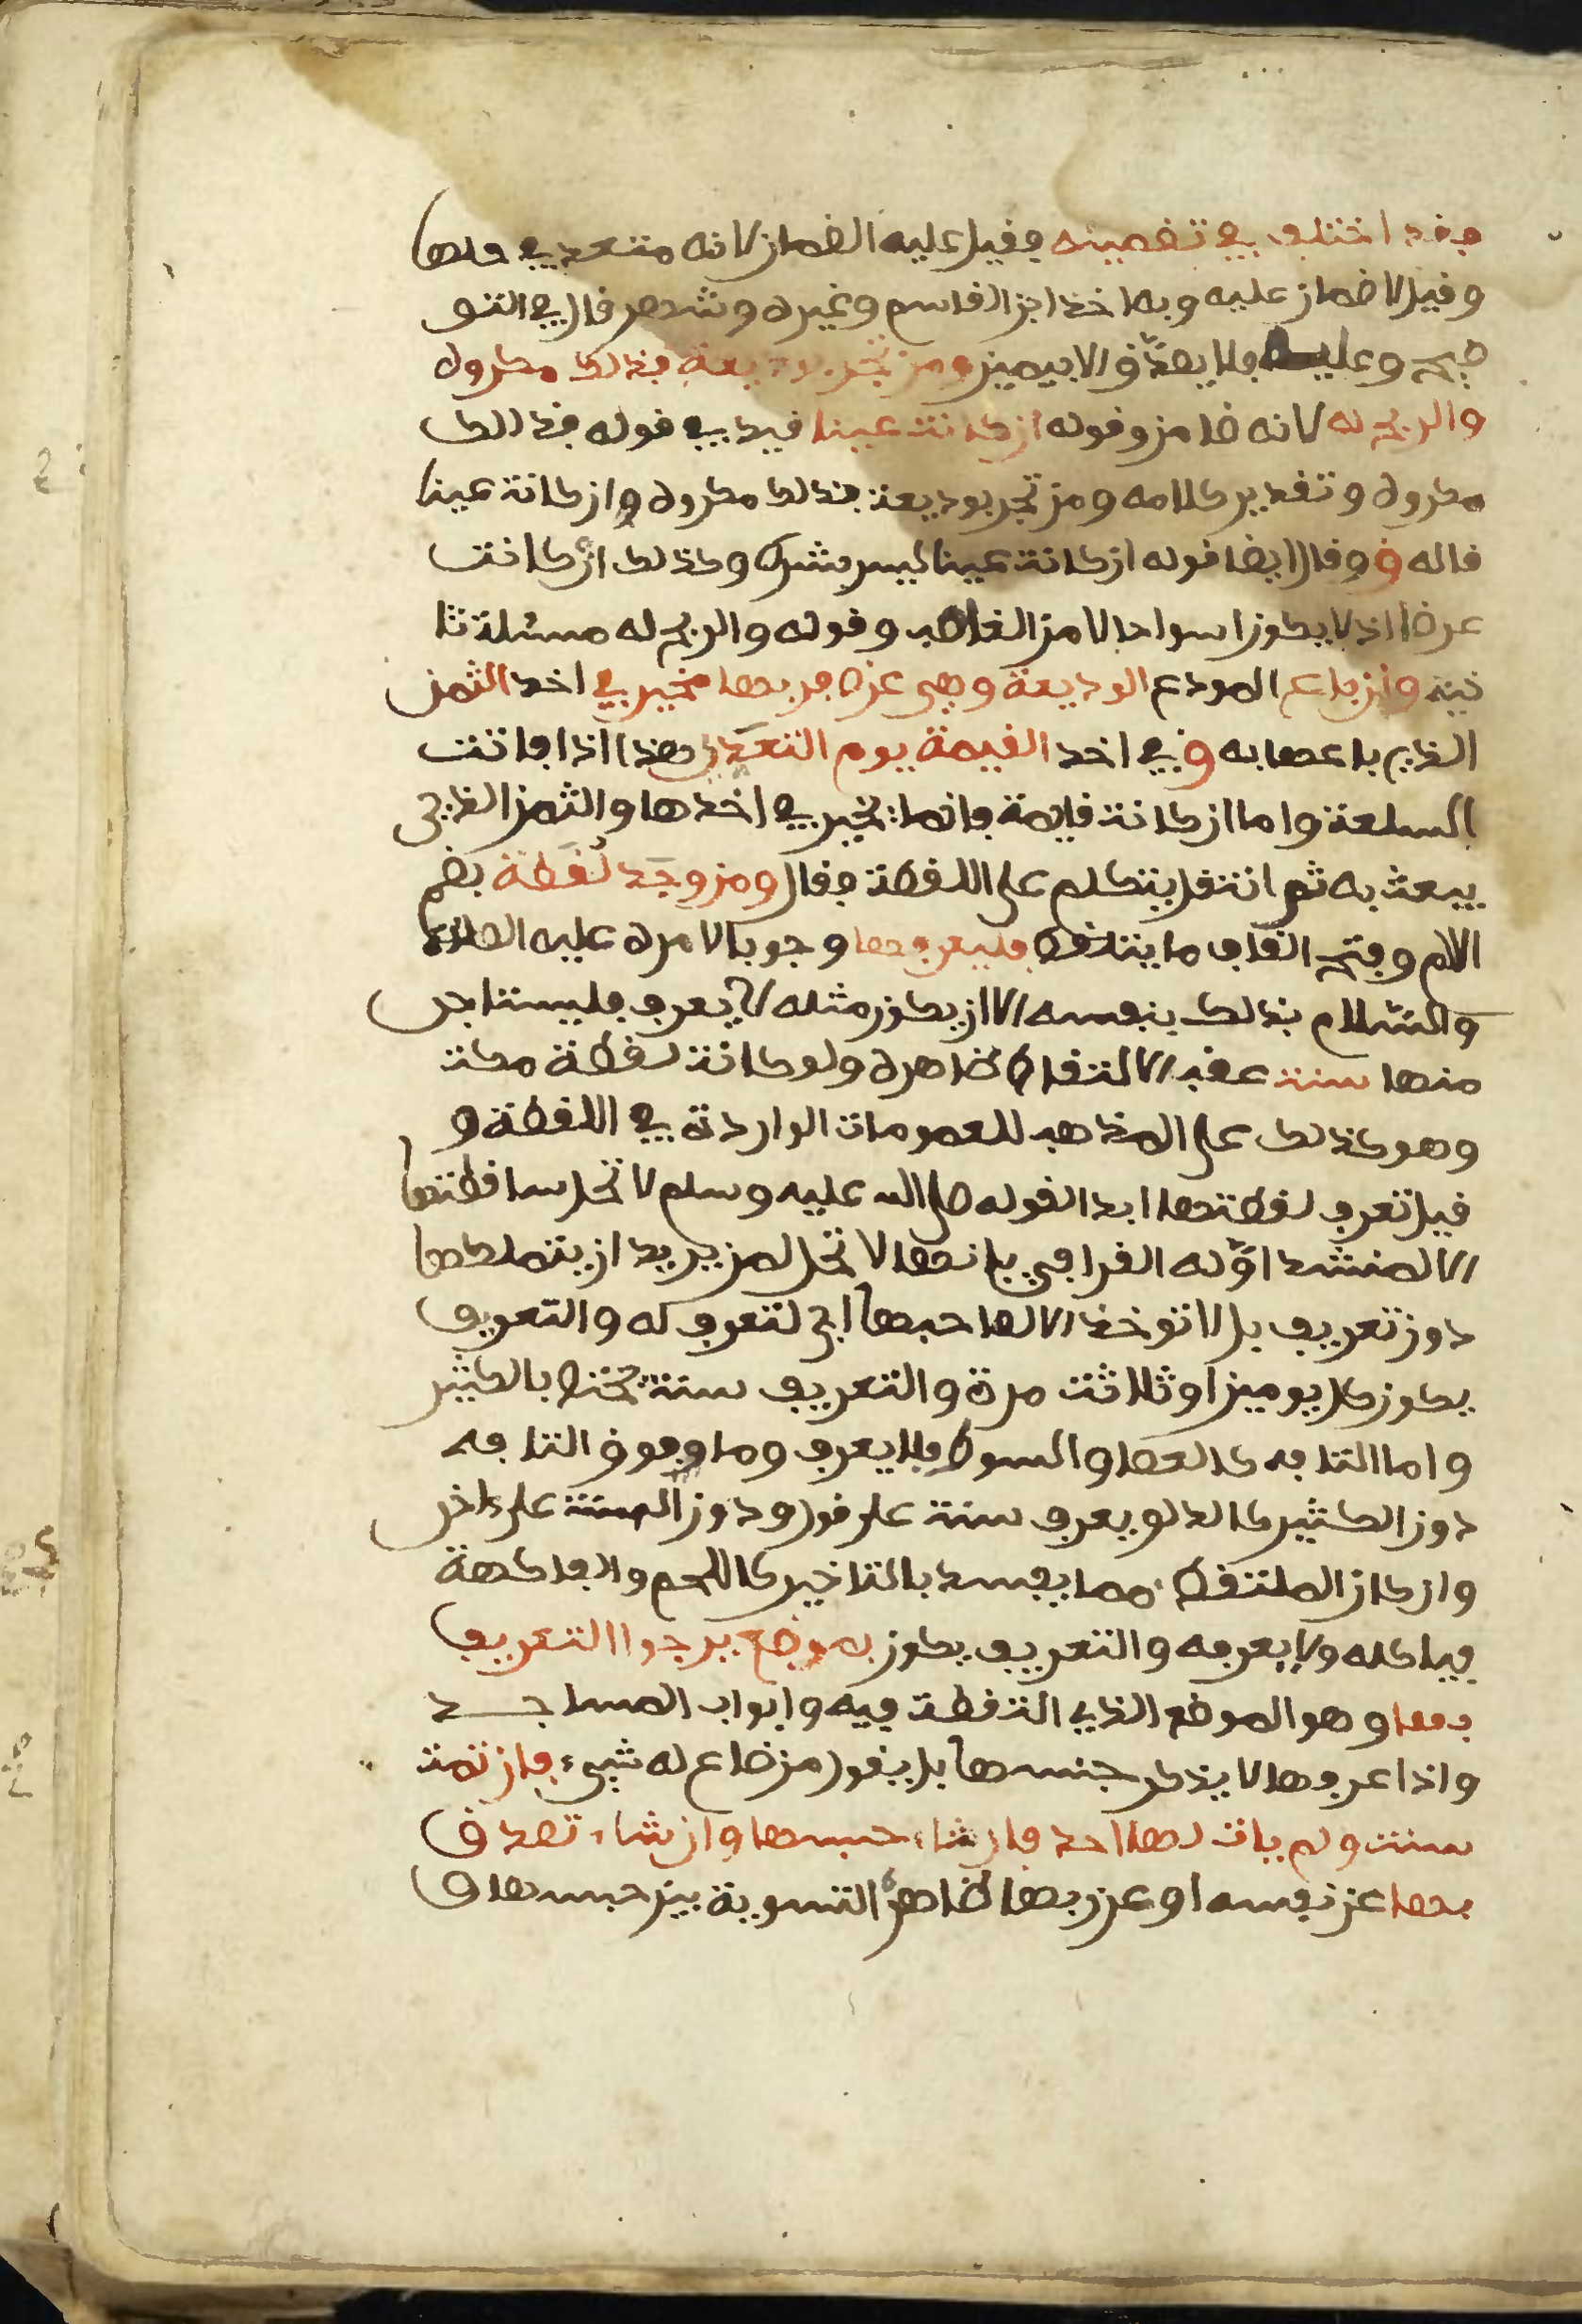 فقد اختلف في تضمينه فقيل عليه الضمان لانه متعد في حلها
وقيل لا ضمان عليه وبه اخذ ابن القاسم وغيره وشهر قال في التو
ضيح وعليه فلا يصدق الا بيمين ومن تجر بوديعة فذلك مكروه
والربح له لانه ضامن وقوله ان كانت عينا قيد في قوله فذالك
مكروه وتقدير كلامه ومن تجر بوديعة فذلك مكروه وان كانت عينا
قاله ق وقال ايضا قوله ان كانت عينا ليس بشرط وكذلك ان كانت
عرضا اذ لا يكون اسوا حالا من الغاصب وقوله والربح له مسئلة ثا
نية وان باع المودع الوديعة وهي عرض فربها مخير في اخد الثمن
الذي باعها به وفي اخد القيمة يوم التعدي هذا اذا فاتت
السلعة واما ان كانت قايمة فانما يخير في اخذها والثمن الذي
بيعت به ثم انتقل يتكلم على اللقطة فقال ومن وجد لقطة بضم
الام وفتح القاف ما يلتقط فليعرفها وجوبا لامره عليه الصلاة
والسلام بذلك بنفسه الا ان يكون مثله لا يعرف فليستاجر
منها سنة عقب الالتقاط ظاهره ولو كانت لقطة مكة
وهو كذلك على المذهب للعمومات الواردة في اللقطة و
قيل تعرف لقطتها ابدا لقوله صلى الله عليه وسلم لا تحل ساقطتها
الا لمنشد اوله القرافي بانها لا تحل لمن يريد ان يتملكها
دون تعريف بل لا توخذ الا لصاحبها اي لتعرف له والتعريف
يكون كل يومين او ثلاثة مرة والتعريف سنة مختص بالكثير
واما التافه كالعصا والسوط فلا يعرف وما فوق التافه
دون الكثير كالدلو يعرف سنة على قول ودون السنة على ءاخر
وان كان الملتقط مما يفسد بالتاخير كاللحم والفاكهة
فياكله ولا يعرفه والتعريف يكون بموضع يرجوا التعريف
بها وهو الموضع الذي التقطت فيه وابواب المساجد
واذا عرفها لا يذكر جنسها بل يقول من ضاع له شيء فان تمت
سنة ولم يات لها احد فان شاء حبسها وان شاء تصدق
بها عن نفسه او عن ربها ظاهره التسوية بين حبسها و